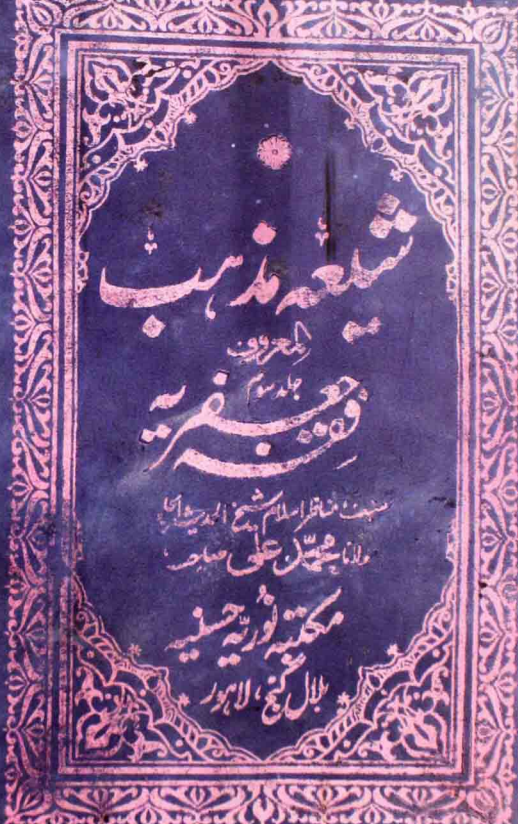 شیعہ مذہب
المعروف
جلد سوم
فقہ جعفریہ
مصنف مناظر اسلام شیخ الحدیث
مولانا محمد علی صاحب
مکتبہ نوریہ حسنیہ
بلال گنج، لاہور